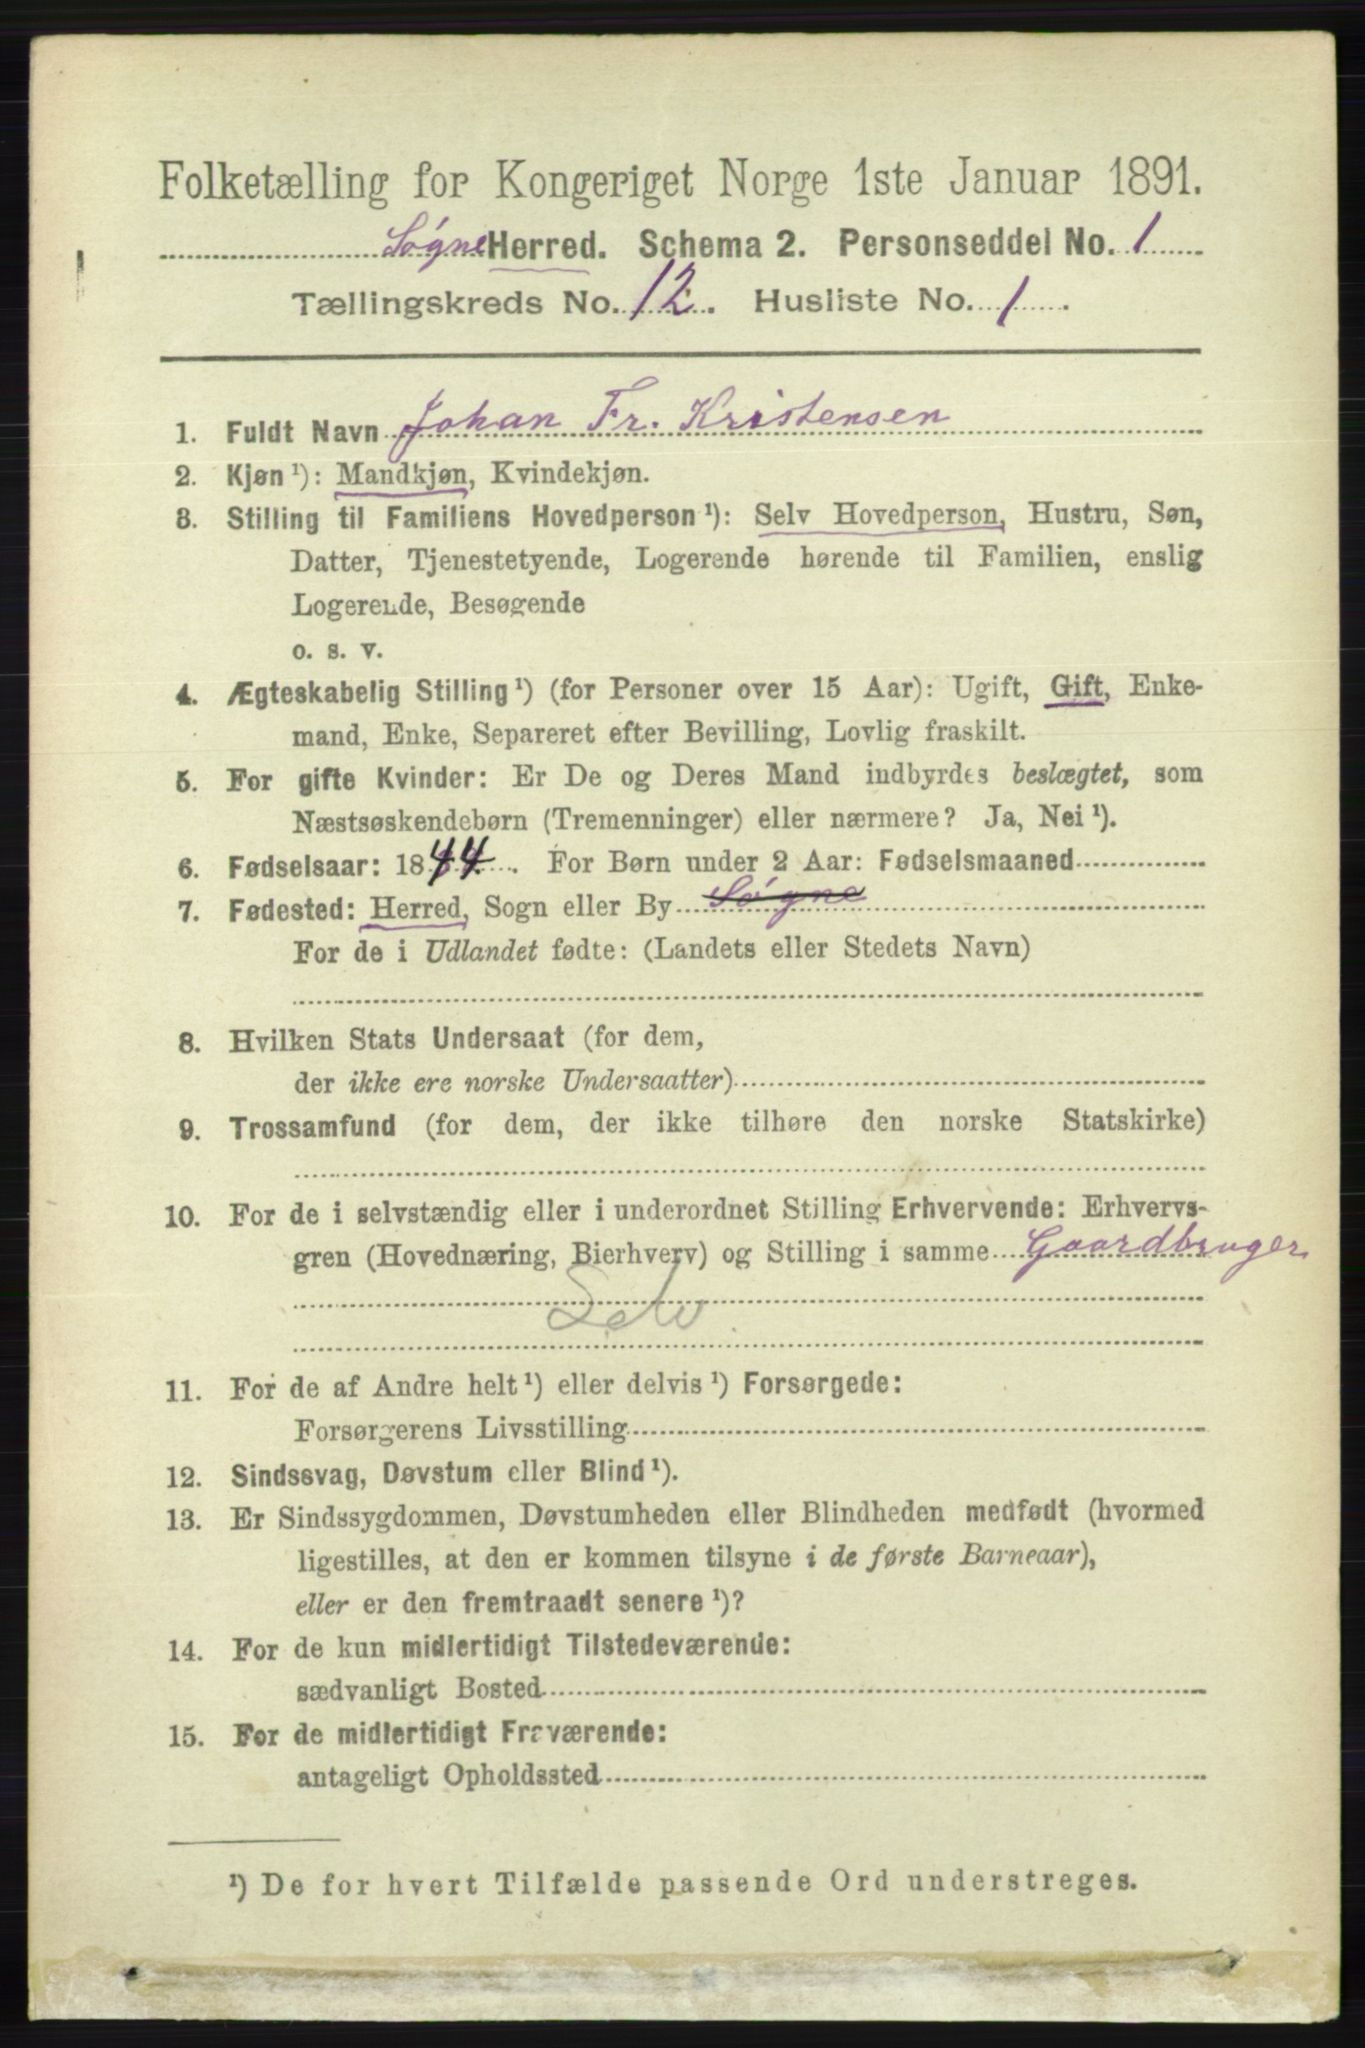 Folketælling for Kongeriget Norge 1ste Januar 1891.
Søgne Herred. Schema 2. Personseddel No. 1
Tællingskreds No. 12. Husliste No. 1.
1. Fuldt Navn Johan Fr. Kristensen
2. Kjøn ¹): Mandkjøn, Kvindekjøn.
3. Stilling til Familiens Hovedperson ¹): Selv Hovedperson, Hustru, Søn,
Datter, Tjenestetyende, Logerende hørende til Familien, enslig
Logerende, Besøgende
o. s. v.
4. Ægteskabelig Stilling ¹) (for Personer over 15 Aar): Ugift, Gift, Enke-
mand, Enke, Separeret efter Bevilling, Lovlig fraskilt.
5. For gifte Kvinder: Er De og Deres Mand indbyrdes beslægtet, som
Næstsøskendebørn (Tremenninger) eller nærmere? Ja, Nei ¹).
6. Fødselsaar: 1844. For Børn under 2 Aar: Fødselsmaaned
7. Fødested: Herred, Sogn eller By Søgne
For de i Udlandet fødte: (Landets eller Stedets Navn)
8. Hvilken Stats Undersaat (for dem,
der ikke ere norske Undersaatter)
9. Trossamfund (for dem, der ikke tilhøre den norske Statskirke)
10. For de i selvstændig eller i underordnet Stilling Erhvervende: Erhvervs-
gren (Hovednæring, Bierhverv) og Stilling i samme Gaardbruger
Selv
11. For de af Andre helt ¹) eller delvis ¹) Forsørgede:
Forsørgerens Livsstilling
12. Sindssvag, Døvstum eller Blind ¹).
13. Er Sindssygdommen, Døvstumheden eller Blindheden medfødt (hvormed
ligestilles, at den er kommen tilsyne i de første Barneaar),
eller er den fremtraadt senere ¹)?
14. For de kun midlertidigt Tilstedeværende:
sædvanligt Bosted
15. For de midlertidigt Fraværende:
antageligt Opholdssted
¹) De for hvert Tilfælde passende Ord understreges.